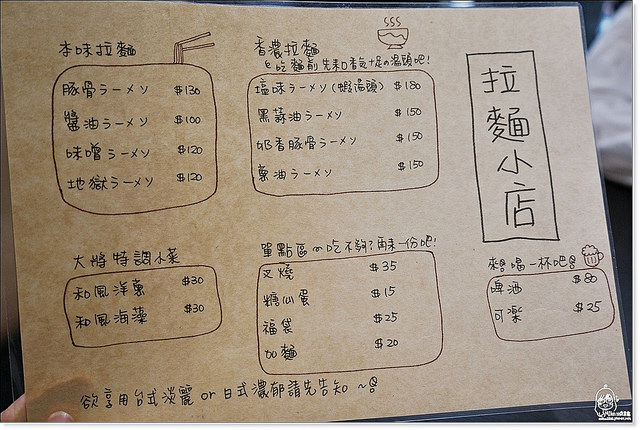 本味拉麵
豚骨ラーメン $130
醬油ラーメン $100
味噌ラーメン $120
地獄ラーメン $120
香濃拉麵
吃麵前先來口香氣十足の湯頭吧!
塩味ラーメン(蝦湯頭) $180
黑蒜油ラーメン $150
奶香豚骨ラーメン $150
蔥油ラーメン $150
拉麵小店
大將特調小菜
和風洋蔥 $30
和風海藻 $30
單點區~吃不夠?再來一份吧!
叉燒 $35
糖心蛋 $15
福袋 $25
加麵 $20
來喝一杯吧
啤酒 $80
可樂 $25
欲享用台式淡麗 or 日式濃郁請先告知~